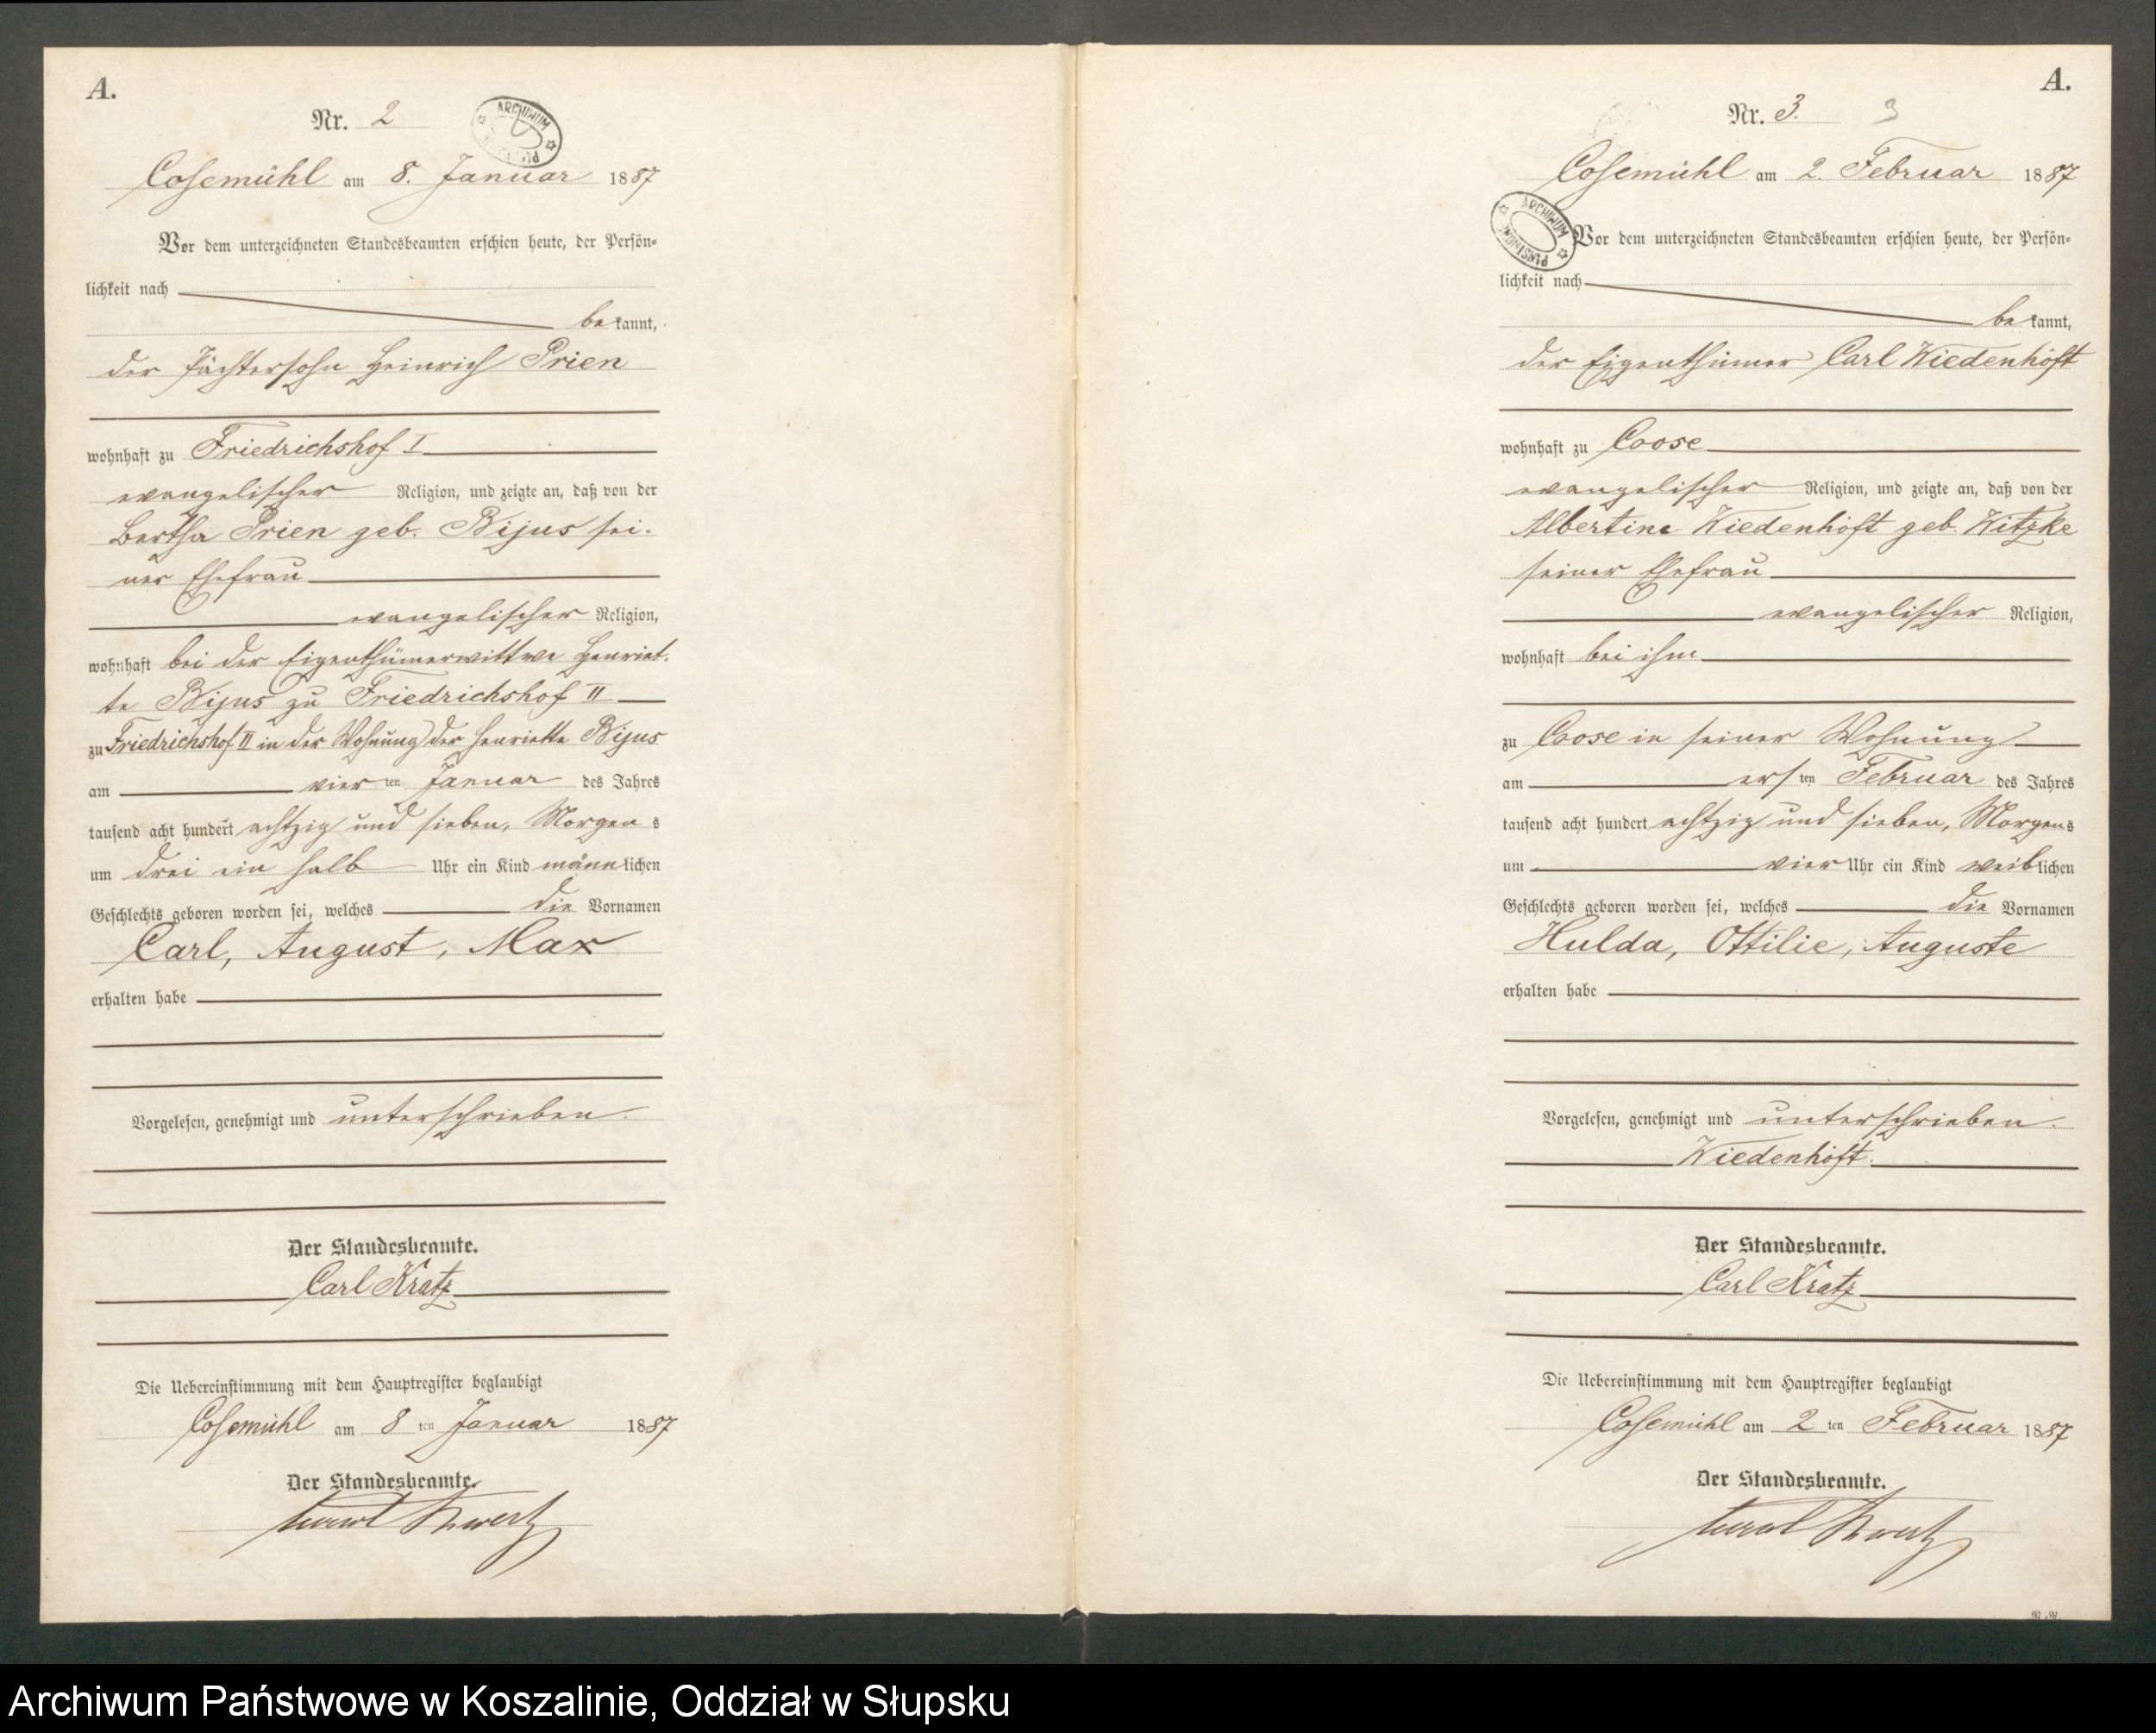 A.
Nr. 2
ARCHIWUM
Cosemühl am 8. Januar 1887
Vor dem unterzeichneten Standesbeamten erschien heute, der Persön-
lichkeit nach
bekannt,
der Pächtersohn Heinrich Prien
wohnhaft zu Friedrichshof I
evangelischer Religion, und zeigte an, daß von der
Bertha Prien geb. Bijus sei-
ner Ehefrau
evangelischer Religion,
wohnhaft bei der Eigenthümerwittwe Henriet-
te Bijus zu Friedrichshof II
zu Friedrichshof II in der Wohnung der Henriette Bijus
am vierten Januar des Jahres
tausend acht hundert achtzig und sieben, Morgens
um drei ein halb Uhr ein Kind männlichen
Geschlechts geboren worden sei, welches die Vornamen
Carl, August, Max
erhalten habe
Vorgelesen, genehmigt und unterschrieben.
Der Standesbeamte.
Carl Kratz
Die Uebereinstimmung mit dem Hauptregister beglaubigt
Cosemühl am 8 ten Januar 1887
Der Standesbeamte.
A.
Nr. 3. 3
Cosemühl am 2. Februar 1887
ARCHIWUM
Vor dem unterzeichneten Standesbeamten erschien heute, der Persön-
lichkeit nach
bekannt,
der Eigenthümer Carl Wiedenhöft
wohnhaft zu Coose
evangelischer Religion, und zeigte an, daß von der
Albertine Wiedenhöft geb. Witzke
seiner Ehefrau
evangelischer Religion,
wohnhaft bei ihm
zu Coose in seiner Wohnung
am ersten Februar des Jahres
tausend acht hundert achtzig und sieben, Morgens
um vier Uhr ein Kind weiblichen
Geschlechts geboren worden sei, welches die Vornamen
Hulda, Ottilie, Auguste
erhalten habe
Vorgelesen, genehmigt und unterschrieben.
Wiedenhöft.
Der Standesbeamte.
Carl Kratz
Die Uebereinstimmung mit dem Hauptregister beglaubigt
Cosemühl am 2 ten Februar 1887
Der Standesbeamte.
Archiwum Państwowe w Koszalinie, Oddział w Słupsku